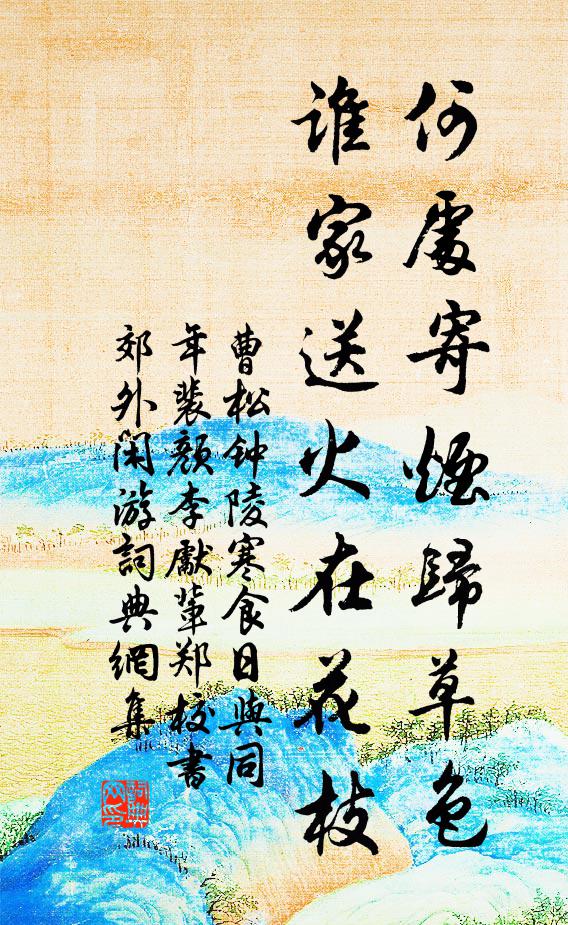 何處寄煙歸草色
誰家送火在花枝
曹松钟陵寒食日與同
年裴颜李獻辈郑校書
郊外闲游詞典網集